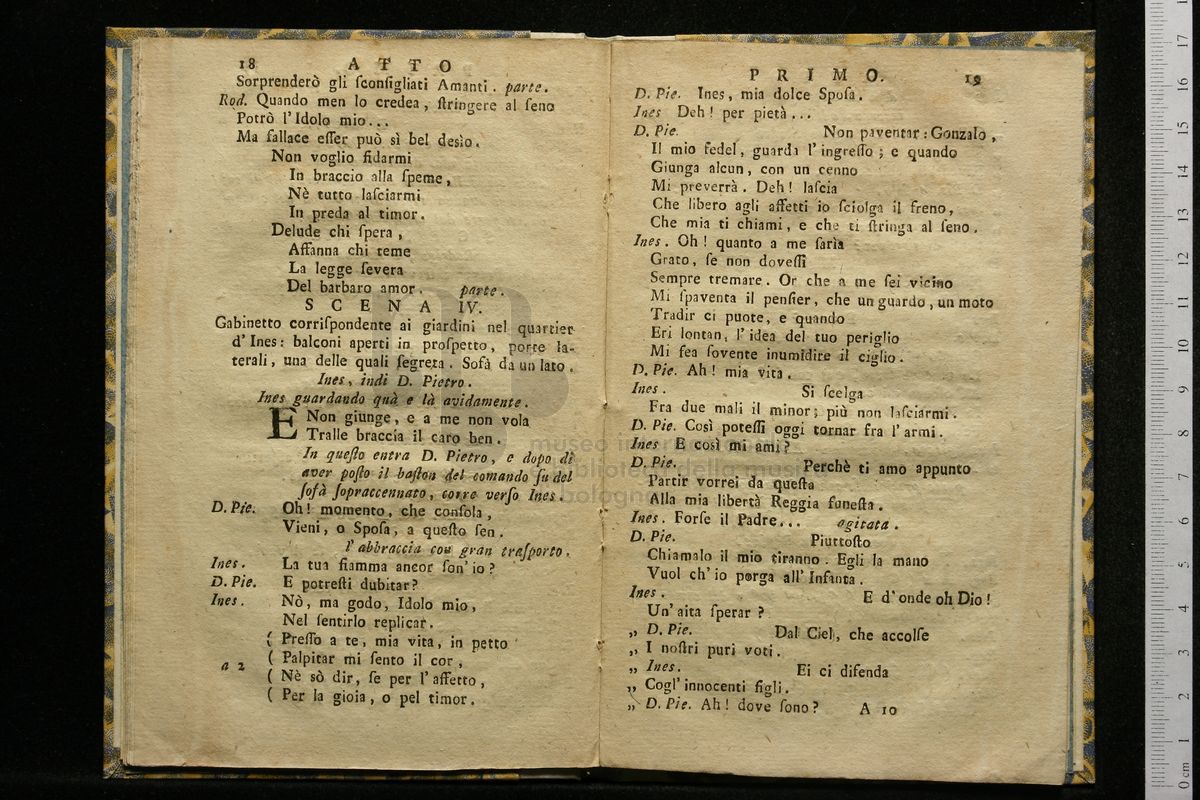 18 ATTO
Sorprenderò gli ſconſigliati Amanti. parte.
Rod. Quando men lo credea, ſtringere al ſeno
Potrò l'Idolo mio...
Ma fallace eſſer può sì bel desìo.
Non voglio fidarmi
In braccio alla ſpeme,
Nè tutto laſciarmi
In preda al timor.
Delude chi ſpera,
Affanna chi teme
La legge ſevera
Del barbaro amor. parte.
SCENA IV.
Gabinetto corriſpondente ai giardini nel quartier
d'Ines: balconi aperti in proſpetto, porte la-
terali, una delle quali ſegreta. Sofà da un lato.
Ines, indi D. Pietro.
Ines guardando quà e là avidamente.
E Non giunge, e a me non vola
Tralle braccia il caro ben.
In queſto entra D. Pietro, e dopo di
aver poſto il baſton del comando ſu del
ſofà ſopraccennato, corre verſo Ines.
D. Pie. Oh! momento, che conſola,
Vieni, o Spoſa, a queſto ſen.
l'abbraccia con gran traſporto.
Ines. La tua fiamma ancor ſon'io?
D. Pie. E potreſti dubitar?
Ines. Nò, ma godo, Idolo mio,
Nel ſentirlo replicar.
( Preſſo a te, mia vita, in petto
a 2 ( Palpitar mi ſento il cor,
( Nè sò dir, ſe per l'affetto,
( Per la gioia, o pel timor.
PRIMO. 19
D. Pie. Ines, mia dolce Spoſa.
Ines Deh! per pietà...
D. Pie. Non paventar: Gonzalo,
Il mio fedel, guarda l'ingreſſo; e quando
Giunga alcun, con un cenno
Mi preverrà. Deh! laſcia
Che libero agli affetti io ſciolga il freno,
Che mia ti chiami, e che ti ſtringa al ſeno.
Ines. Oh! quanto a me ſaria
Grato, ſe non doveſſi
Sempre tremare. Or che a me ſei vicino
Mi ſpaventa il penſier, che un guardo, un moto
Tradir ci puote, e quando
Eri lontan, l'idea del tuo periglio
Mi fea ſovente inumidire il ciglio.
D. Pie. Ah! mia vita.
Ines. Si ſcelga
Fra due mali il minor; più non laſciarmi.
D. Pie. Così poteſſi oggi tornar fra l'armi.
Ines E così mi ami?
D. Pie. Perchè ti amo appunto
Partir vorrei da queſta
Alla mia libertà Reggia funeſta.
Ines. Forſe il Padre... agitata.
D. Pie. Piuttoſto
Chiamalo il mio tiranno. Egli la mano
Vuol ch'io porga all'Infanta.
Ines. E d'onde oh Dio!
Un'aita ſperar?
„ D. Pie. Dal Ciel, che accolſe
„ I noſtri puri voti.
„ Ines. Ei ci difenda
„ Cogl'innocenti figli.
„ D. Pie. Ah! dove ſono? A 10